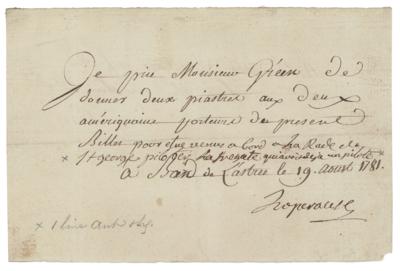 Je prie Monsieur Gréen de
donner deux piastres aux deux
amériquains porteurs du present
Billet pour etre venus a bord a la Rade de
x St george piloter la fregate qui avoit deja un pilote x
a Bord de L'astrée le 19 aoust 1781.
Laperouse
x 1 line